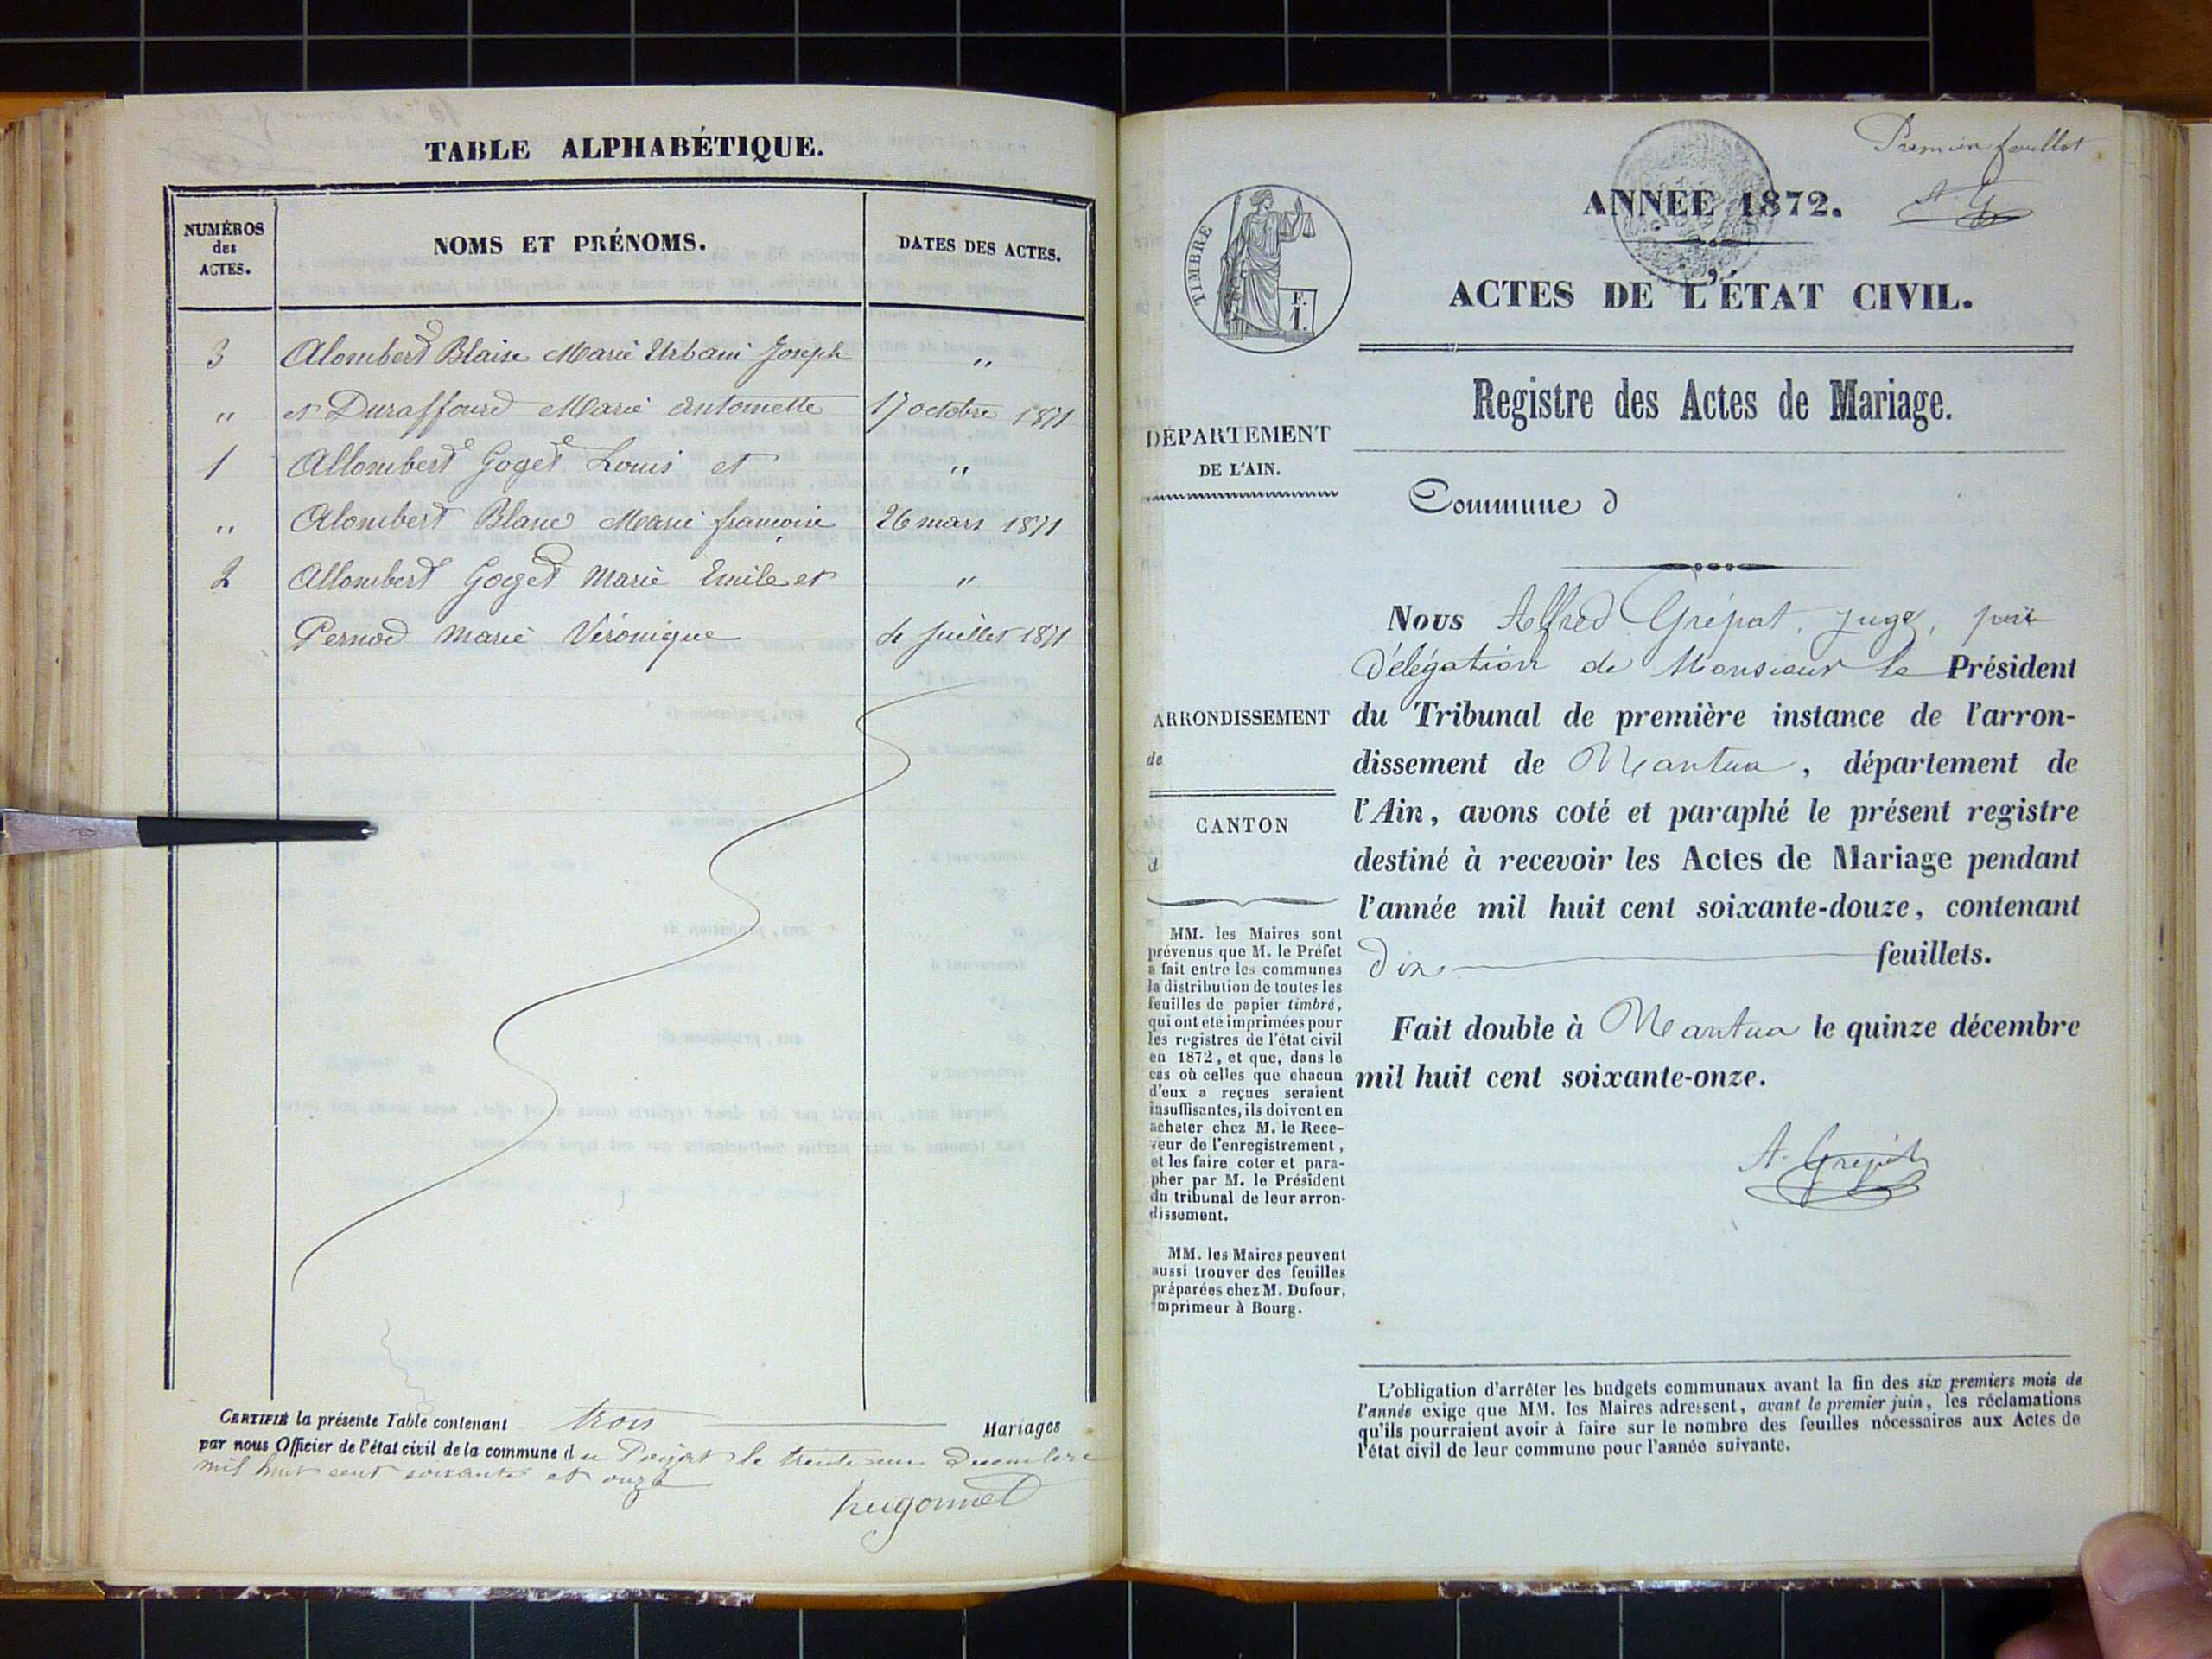 TABLE ALPHABÉTIQUE.
NUMÉROS
des
ACTES.
NOMS ET PRÉNOMS.
DATES DES ACTES.
3 Alombert Blaise Marie Urbain Joseph "
" et Duraffourd Marie Antoinette 17 octobre 1871
1 Allombert Goget Louis et "
" Alombert Blanc Marie françoise 26 mars 1871
2 Allombert Goget Marie Emile et "
Pernod Marie Véronique 4 Juillet 1871
CERTIFIÉ la présente Table contenant trois Mariages
par nous Officier de l'état civil de la commune du Poizat le trente un Decembre
mil huit cent soixante et onze
hugonnet
Premier feuillet
A. G
TIMBRE
F.
1.
ANNÉE 1872.
ACTES DE L'ÉTAT CIVIL.
Registre des Actes de Mariage.
DÉPARTEMENT
DE L'AIN.
Commune d
ARRONDISSEMENT
de
CANTON
d
MM. les Maires sont
prévenus que M. le Préfet
a fait entre les communes
la distribution de toutes les
feuilles de papier timbré,
qui ont eté imprimées pour
les registres de l'état civil
en 1872, et que, dans le
cas où celles que chacun
d'eux a reçues seraient
insuffisantes, ils doivent en
acheter chez M. le Rece-
veur de l'enregistrement,
et les faire coter et para-
pher par M. le Président
du tribunal de leur arron-
dissement.
MM. les Maires peuvent
aussi trouver des feuilles
préparées chez M. Dufour,
imprimeur à Bourg.
Nous Alfred Grépat, juge, par
délégation de Monsieur le Président
du Tribunal de première instance de l'arron-
dissement de Nantua, département de
l'Ain, avons coté et paraphé le présent registre
destiné à recevoir les Actes de Mariage pendant
l'année mil huit cent soixante-douze, contenant
dix feuillets.
Fait double à Nantua le quinze décembre
mil huit cent soixante-onze.
A. Grépat
L'obligation d'arrêter les budgets communaux avant la fin des six premiers mois de
l'année exige que MM. les Maires adressent, avant le premier juin, les réclamations
qu'ils pourraient avoir à faire sur le nombre des feuilles nécessaires aux Actes de
l'état civil de leur commune pour l'année suivante.